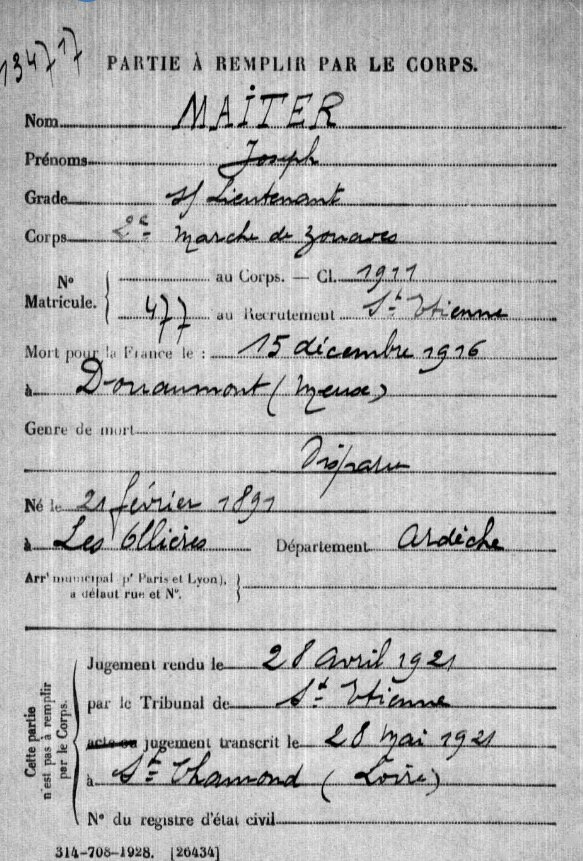 134717
PARTIE À REMPLIR PAR LE CORPS.
Nom MAITER
Prénoms Joseph
Grade s/ Lieutenant
Corps 2e Marche de Zouaves
N° Matricule. { au Corps. — Cl. 1911
477 au Recrutement St Etienne
Mort pour la France le : 15 décembre 1916
à Douaumont (Meuse)
Genre de mort
Disparu
Né le 21 février 1891
à Les Ollières Département Ardèche
Arrt municipal (pr Paris et Lyon), à défaut rue et N°. }
Cette partie n'est pas à remplir par le Corps.
Jugement rendu le 28 avril 1921
par le Tribunal de St Etienne
acte ou jugement transcrit le 28 Mai 1921
à St Chamond (Loire)
N° du registre d'état civil
314-708-1928. [26434]